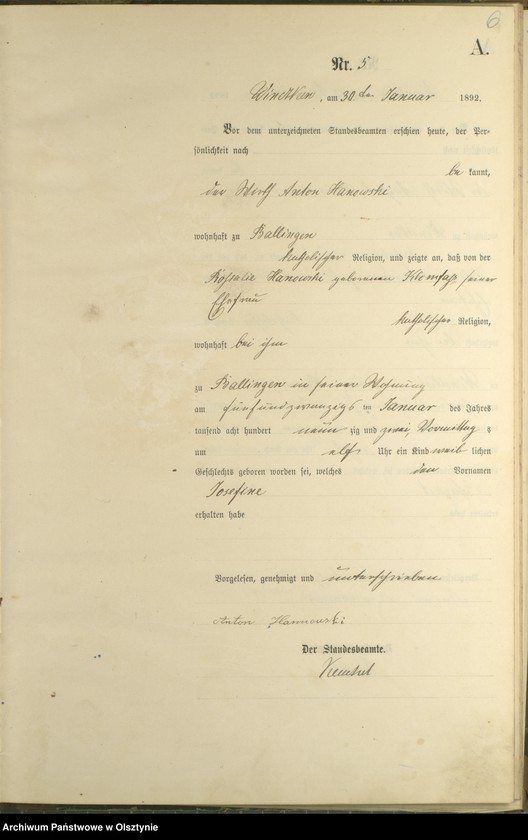 6
A.
Nr. 5
am 30. ten Januar 1892.
Vor dem unterzeichneten Standesbeamten erschien heute, der Per-
sönlichkeit nach
be kannt,
der Wirth Anton Hanowski
wohnhaft zu Ballingen
katholischer Religion, und zeigte an, daß von der
Rosalie Hanowski geborenen seiner
Ehefrau
katholischer Religion,
wohnhaft bei ihm
zu Ballingen in seiner Wohnung
am fünfundzwanzigs ten Januar des Jahres
tausend acht hundert neun zig und zwei, Vormittag s
um elf Uhr ein Kind weib lichen
Geschlechts geboren worden sei, welches den Vornamen
Josefine
erhalten habe
Vorgelesen, genehmigt und unterschrieben
Anton Hannowski
Der Standesbeamte.
Archiwum Państwowe w Olsztynie